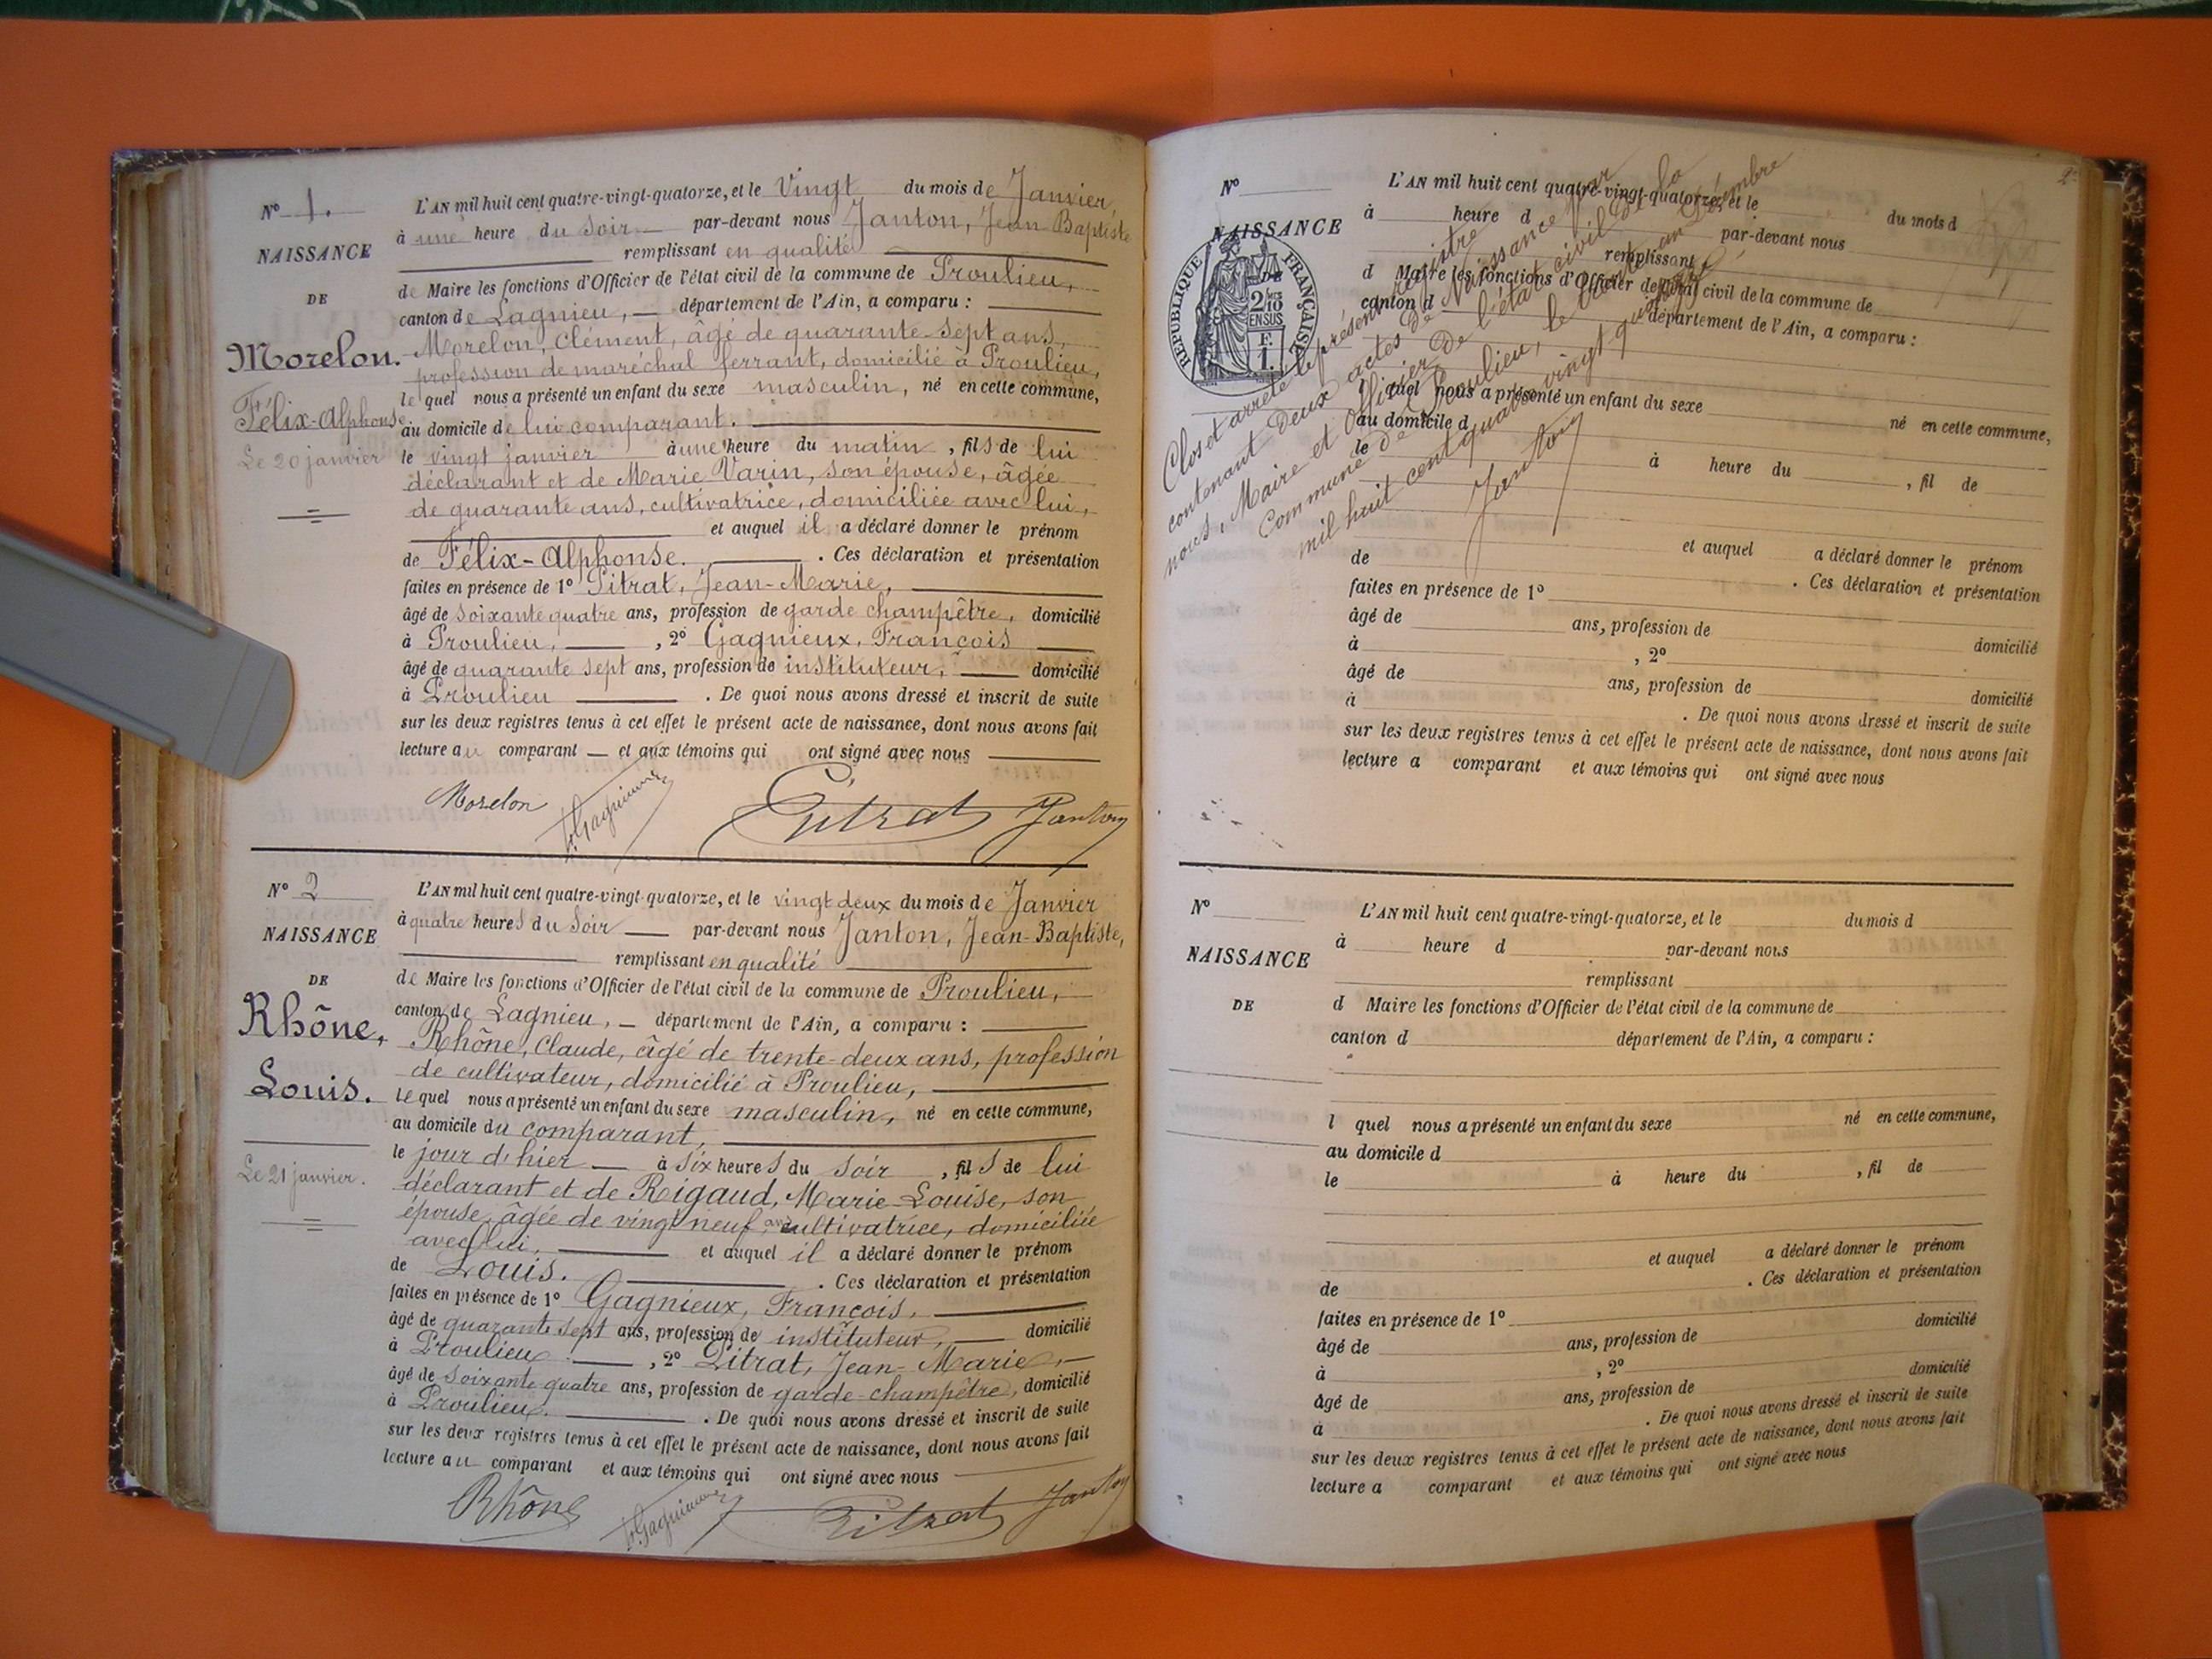 N° 1.
NAISSANCE
DE
Morelon.
Félix-Alphonse
Le 20 janvier
L'AN mil huit cent quatre-vingt-quatorze, et le Vingt du mois de Janvier,
à une heure du Soir — par-devant nous Janton, Jean-Baptiste
remplissant en qualité
de Maire les fonctions d'Officier de l'état civil de la commune de Proulieu,
canton de Lagnieu, — département de l'Ain, a comparu :
Morelon, Clément, âgé de quarante-sept ans,
profession de maréchal ferrant, domicilié à Proulieu,
lequel nous a présenté un enfant du sexe masculin, né en cette commune,
au domicile de lui comparant.
le vingt janvier à une heure du matin, fils de lui
déclarant et de Marie Varin, son épouse, âgée
de quarante ans, cultivatrice, domiciliée avec lui,
et auquel il a déclaré donner le prénom
de Félix-Alphonse. . Ces déclaration et présentation
faites en présence de 1° Pitrat, Jean-Marie,
âgé de soixante quatre ans, profession de garde champêtre, domicilié
à Proulieu, — , 2° Gagnieux, François
âgé de quarante sept ans, profession de instituteur, — domicilié
à Proulieu — . De quoi nous avons dressé et inscrit de suite
sur les deux registres tenus à cet effet le présent acte de naissance, dont nous avons fait
lecture au comparant — et aux témoins qui ont signé avec nous
Morelon F. Gagnieux Pitrat Janton
N° 2
NAISSANCE
DE
Rhône,
Louis.
Le 21 janvier.
L'AN mil huit cent quatre-vingt-quatorze, et le vingt deux du mois de Janvier
à quatre heures du Soir — par-devant nous Janton, Jean-Baptiste,
remplissant en qualité
de Maire les fonctions d'Officier de l'état civil de la commune de Proulieu,
canton de Lagnieu, — département de l'Ain, a comparu :
Rhône, Claude, âgé de trente-deux ans, profession
de cultivateur, domicilié à Proulieu,
lequel nous a présenté un enfant du sexe masculin, né en cette commune,
au domicile du comparant,
le jour d'hier — à six heures du soir, fils de lui
déclarant et de Rigaud, Marie-Louise, son
épouse, âgée de vingt neuf ans cultivatrice, domiciliée
avec lui, — et auquel il a déclaré donner le prénom
de Louis. . Ces déclaration et présentation
faites en présence de 1° Gagnieux, François,
âgé de quarante sept ans, profession de instituteur, — domicilié
à Proulieu — , 2° Pitrat, Jean-Marie, —
âgé de soixante quatre ans, profession de garde-champêtre, domicilié
à Proulieu. — . De quoi nous avons dressé et inscrit de suite
sur les deux registres tenus à cet effet le présent acte de naissance, dont nous avons fait
lecture au comparant et aux témoins qui ont signé avec nous
Rhône F. Gagnieux Pitrat Janton
2e
N°
NAISSANCE
RÉPUBLIQUE FRANÇAISE
2/10 EN SUS
F. 1.
L'AN mil huit cent quatre-vingt-quatorze, et le du mois d
à heure d par-devant nous
remplissant
d Maire les fonctions d'Officier de l'état civil de la commune de
canton d département de l'Ain, a comparu :
l quel nous a présenté un enfant du sexe né en cette commune,
au domicile d
le à heure du , fil de
et auquel a déclaré donner le prénom
de . Ces déclaration et présentation
faites en présence de 1°
âgé de ans, profession de domicilié
à , 2°
âgé de ans, profession de domicilié
à . De quoi nous avons dressé et inscrit de suite
sur les deux registres tenus à cet effet le présent acte de naissance, dont nous avons fait
lecture a comparant et aux témoins qui ont signé avec nous
Clos et arrêté le présent registre
contenant deux actes de Naissance par
nous, Maire et Officier de l'état civil de la
Commune de Proulieu, le trente un Décembre
mil huit cent quatre vingt quatorze.
Janton
N°
NAISSANCE
DE
L'AN mil huit cent quatre-vingt-quatorze, et le du mois d
à heure d par-devant nous
remplissant
d Maire les fonctions d'Officier de l'état civil de la commune de
canton d département de l'Ain, a comparu :
l quel nous a présenté un enfant du sexe né en cette commune,
au domicile d
le à heure du , fil de
et auquel a déclaré donner le prénom
de . Ces déclaration et présentation
faites en présence de 1°
âgé de ans, profession de domicilié
à , 2°
âgé de ans, profession de domicilié
à . De quoi nous avons dressé et inscrit de suite
sur les deux registres tenus à cet effet le présent acte de naissance, dont nous avons fait
lecture a comparant et aux témoins qui ont signé avec nous